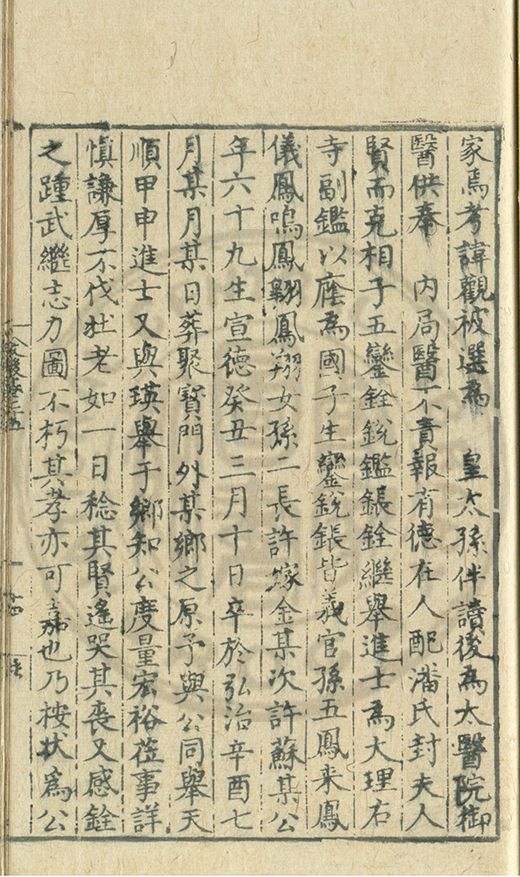 家焉考諱觀被選為　皇太孫伴讀後為大醫院御
醫供奉　內局醫不責報有德在人配潘氏封夫人
賢而克相子五鑾銓銳鑑鋹銓繼舉進士為大理右
寺副鑑以廕為國子生鑾銳鋹皆義官孫五鳳来鳳
儀鳳鳴鳳翺鳳翔女孫二長許嫁金某次許蘇某公
年六十九生宣德癸丑三月十日卒於弘治辛酉七
月某月某日葬聚寳門外某鄉之原予與公同舉天
順甲申進士又與瑛舉于鄉知公度量宏裕莅事詳
慎謙厚不伐壯老如一日稔其賢遙哭其喪又感銓
之踵武繼志力圖不朽其孝亦可嘉也乃桉状為公